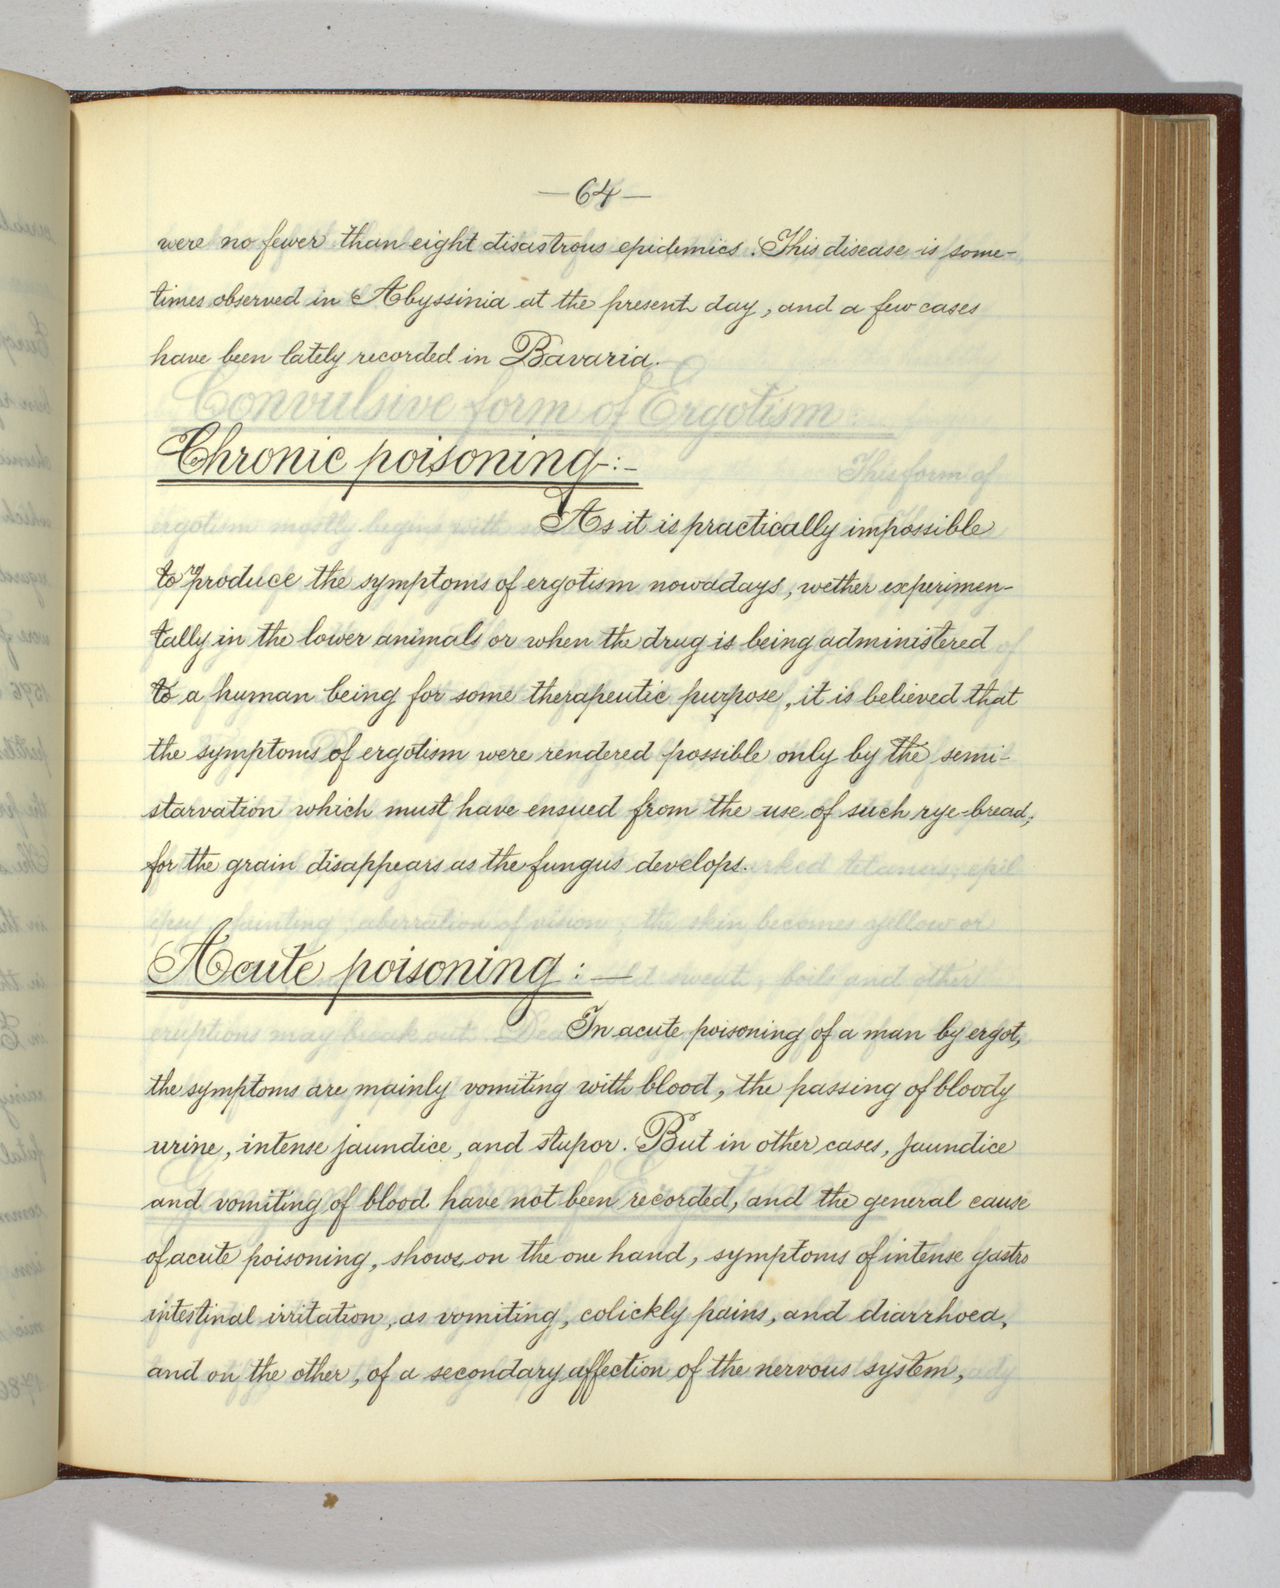 —64—
were no fewer than eight disastrous epidemics. This disease is some-
times observed in Abyssinia at the present day, and a few cases
have been lately recorded in Bavaria.
Convulsive form of Ergotism
Chronic poisoning:-
This form of
As it is practically impossible
to produce the symptoms of ergotism nowadays, wether experimen-
tally in the lower animals or when the drug is being administered
to a human being for some therapeutic purpose, it is believed that
the symptoms of ergotism were rendered possible only by the semi-
starvation which must have ensued from the use of such rye-bread;
for the grain disappears as the fungus develops.
Acute poisoning:—
In acute poisoning of a man by ergot,
the symptoms are mainly vomiting with blood, the passing of bloody
urine, intense jaundice, and stupor. But in other cases, jaundice
and vomiting of blood have not been recorded, and the general cause
of acute poisoning, shows on the one hand, symptoms of intense gastro
intestinal irritation, as vomiting, colickly pains, and diarrhoea,
and on the other, of a secondary affection of the nervous system,